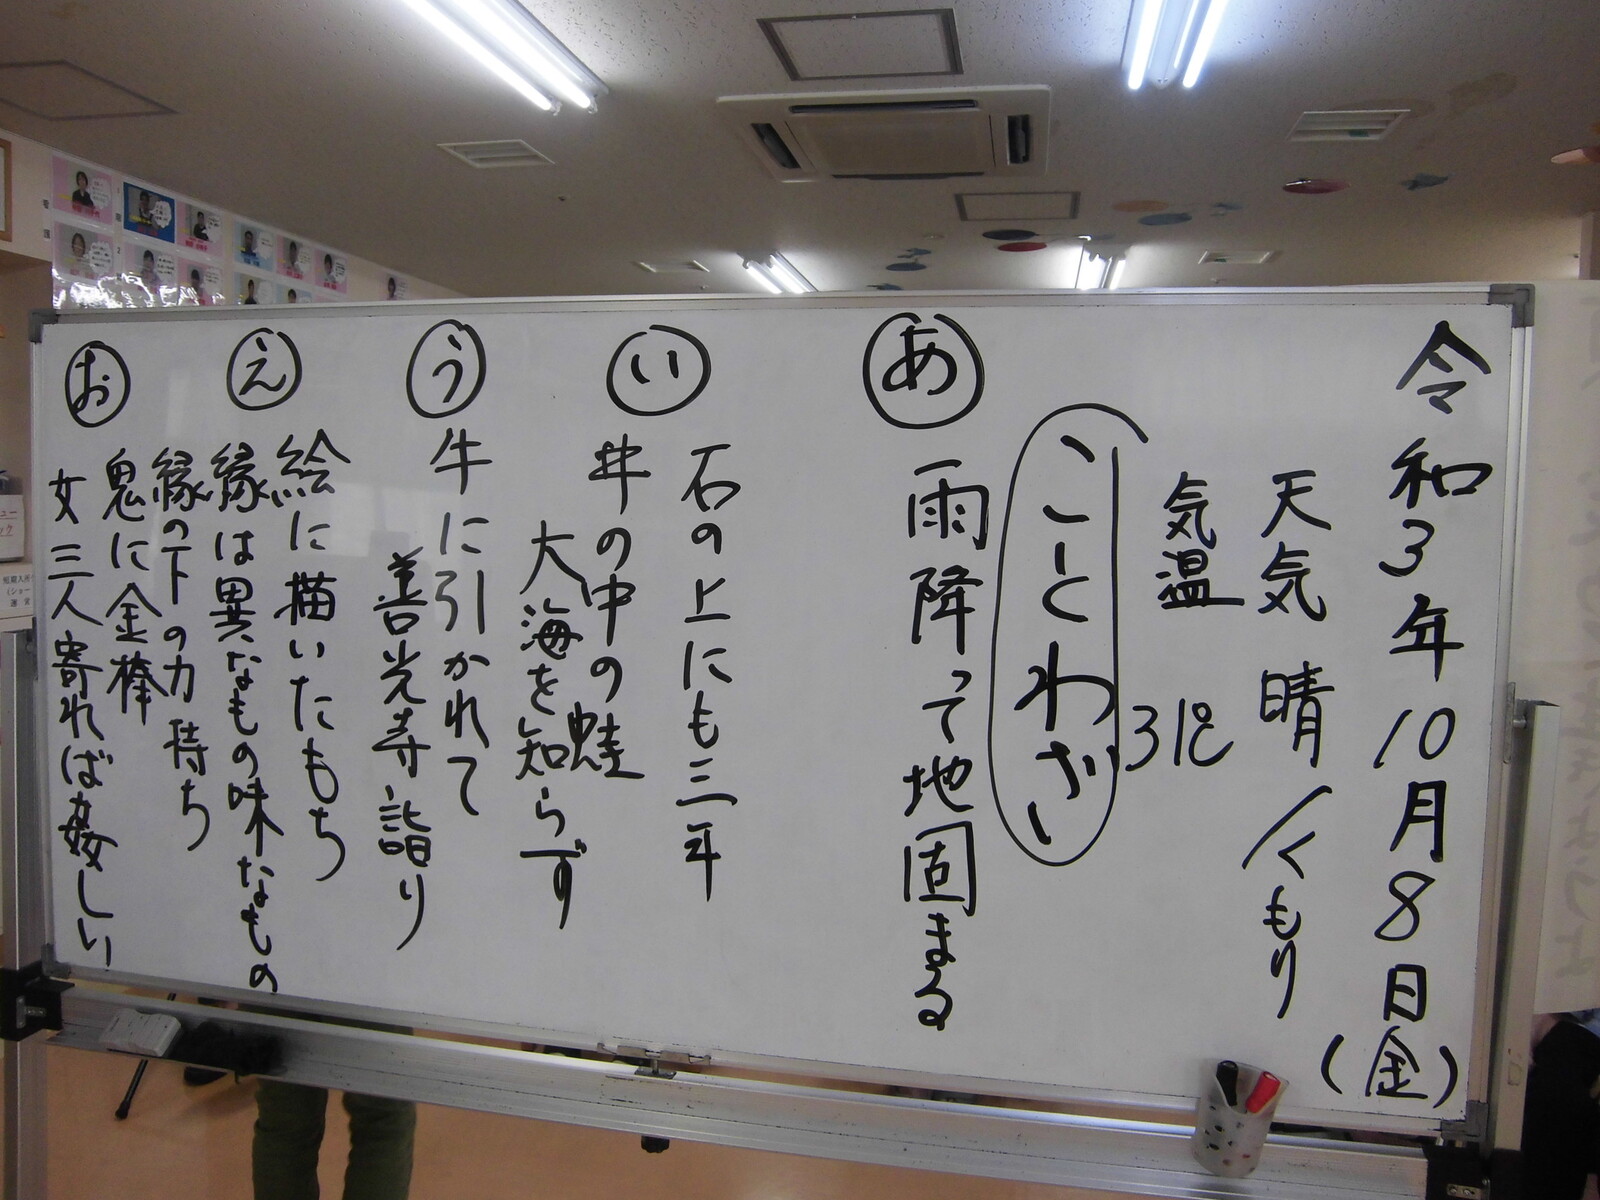 令和3年10月8日(金)
天気 晴/くもり
気温 31℃
ことわざ
あ
雨降って地固まる
い
石の上にも三年
井の中の蛙
大海を知らず
う
牛に引かれて
善光寺詣り
え
絵に描いたもち
縁は異なもの味なもの
縁の下の力持ち
お
鬼に金棒
女三人寄れば姦しい